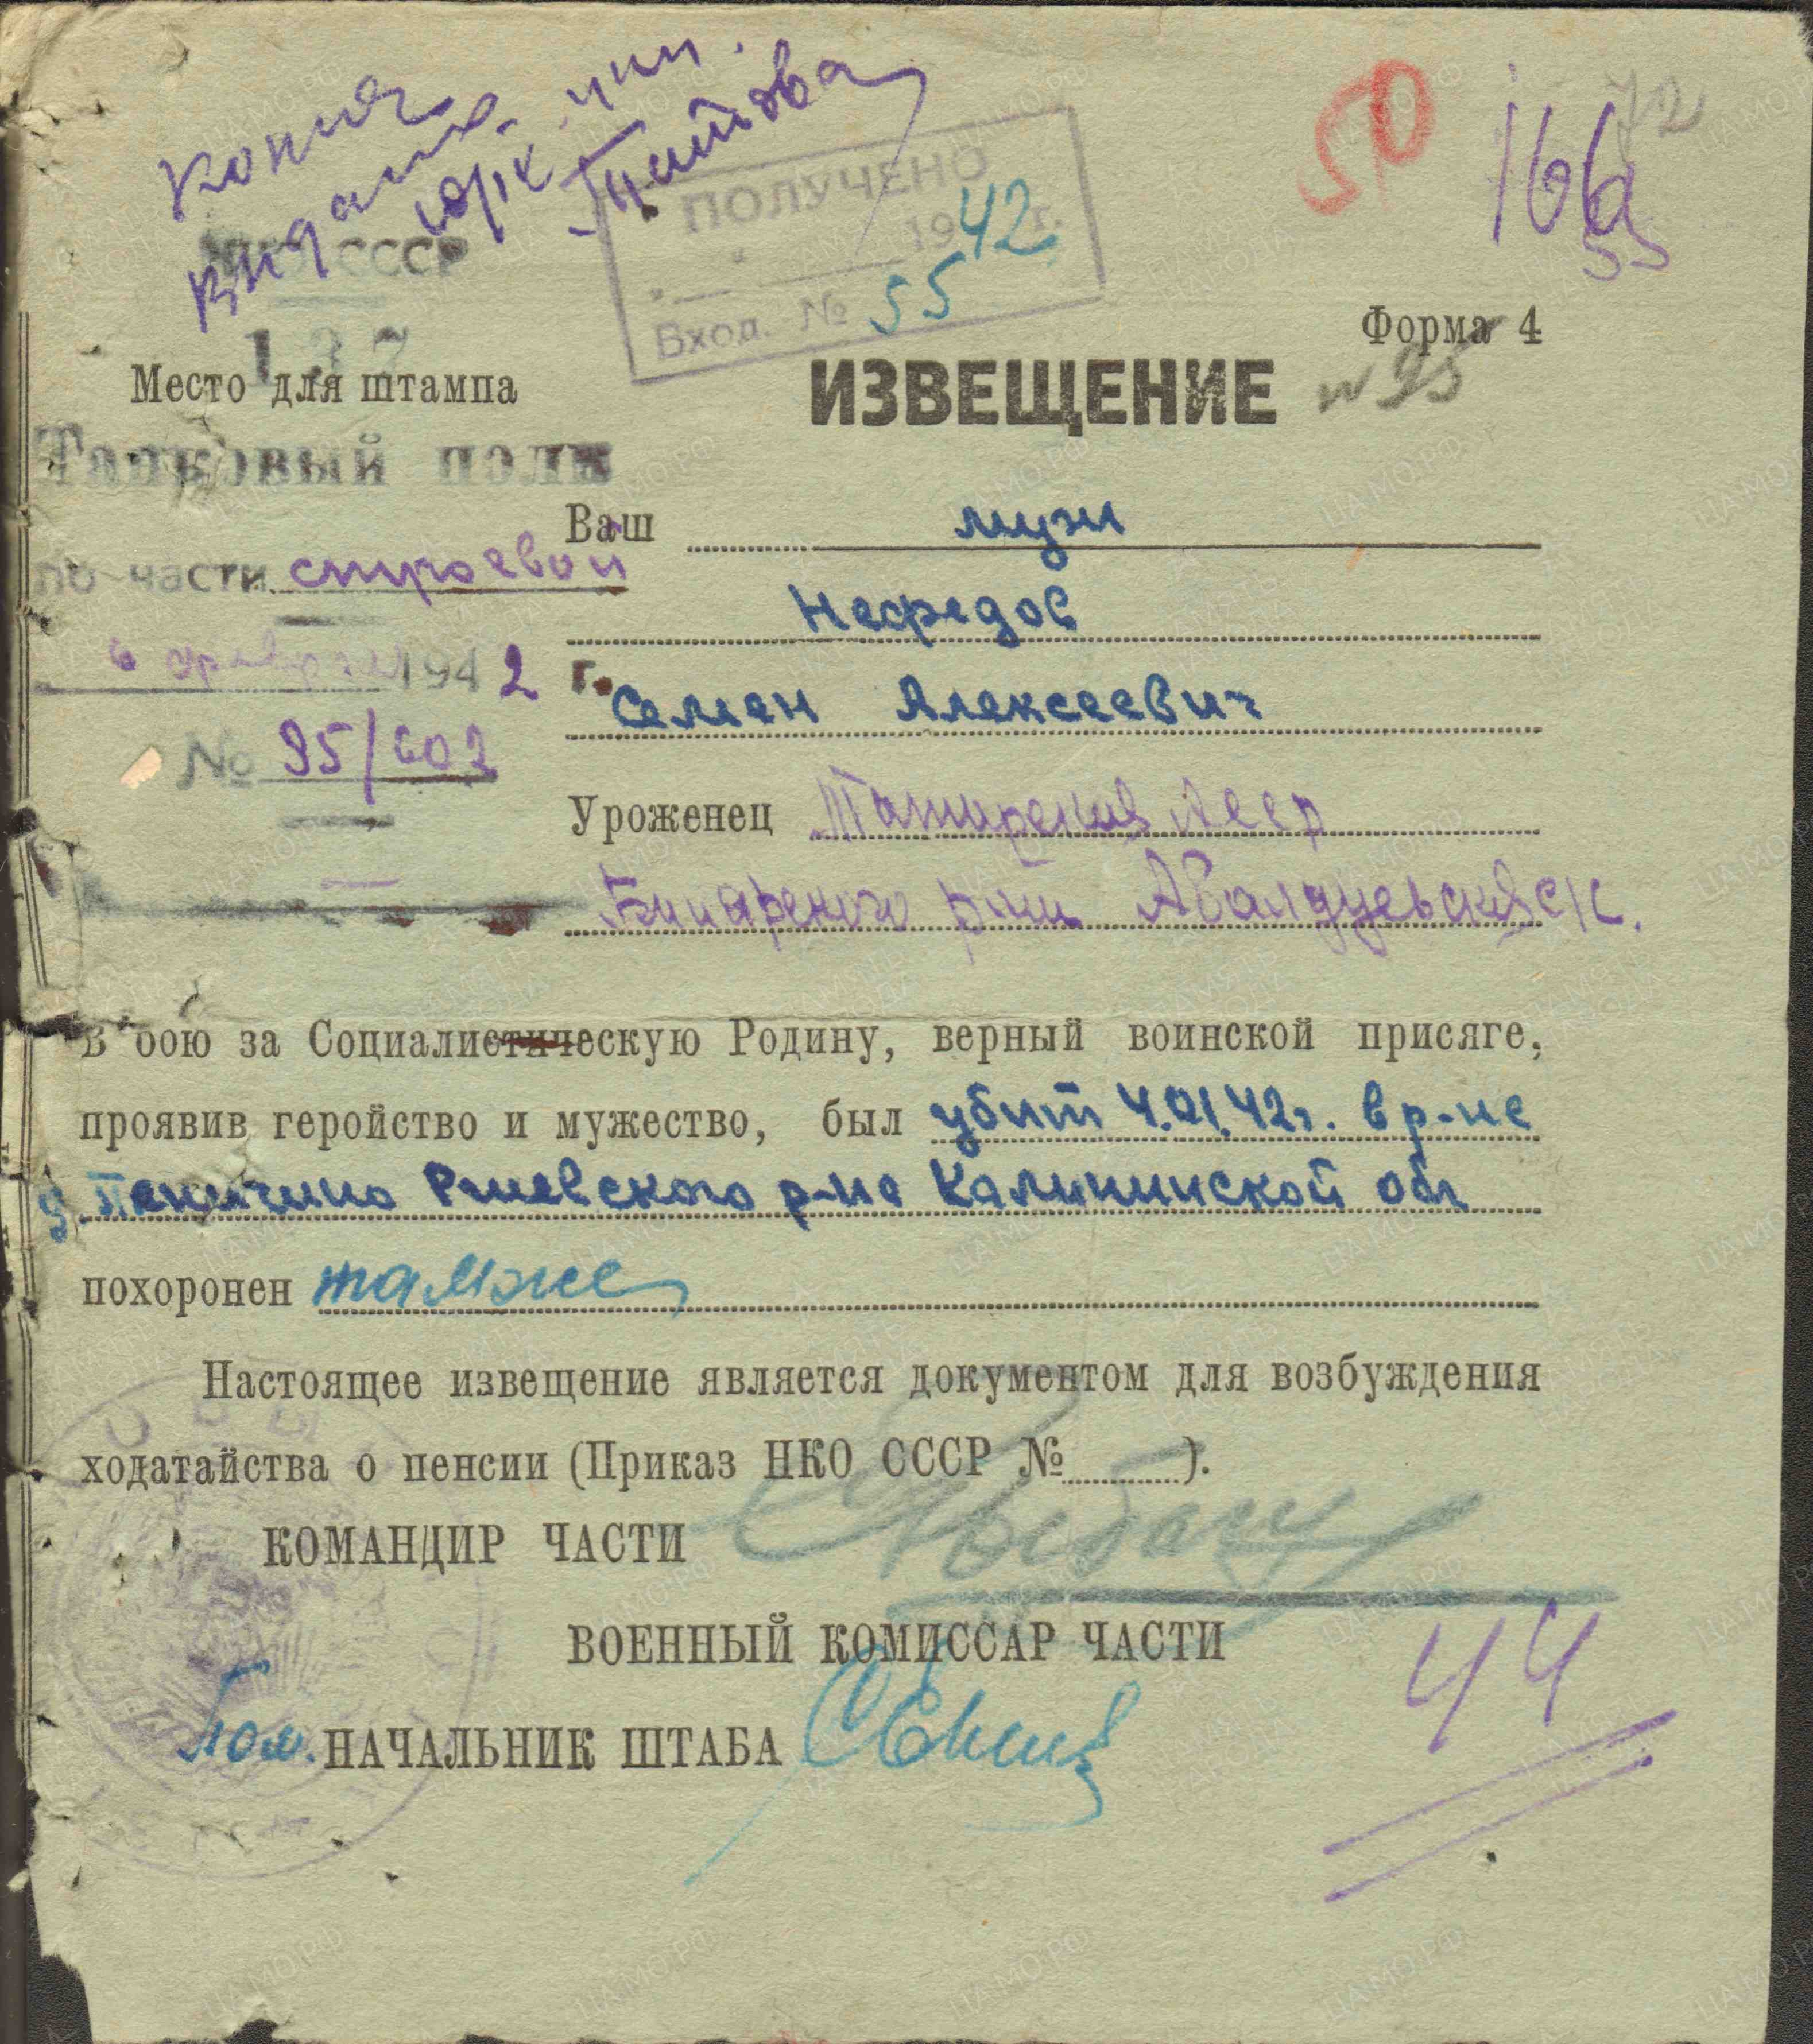 копия
выдана
Титова
50
166
55
НКО СССР
ПОЛУЧЕНО
1942 г.
Вход. № 55
Форма 4
Место для штампа
ИЗВЕЩЕНИЕ
№ 95
Танковый полк
Ваш муж
по части строевой
Нефедов
6 февраля 1942 г.
Семен Алексеевич
№ 95/
Уроженец Татарская АССР
р-на Абалдуевский с/с.
В бою за Социалистическую Родину, верный воинской присяге,
проявив геройство и мужество, был убит 4.01.42г. в р-не
д. Ржевского р-на Калининской обл
похоронен там же
Настоящее извещение является документом для возбуждения
ходатайства о пенсии (Приказ НКО СССР № ).
КОМАНДИР ЧАСТИ
ВОЕННЫЙ КОМИССАР ЧАСТИ
44
Пом. НАЧАЛЬНИК ШТАБА